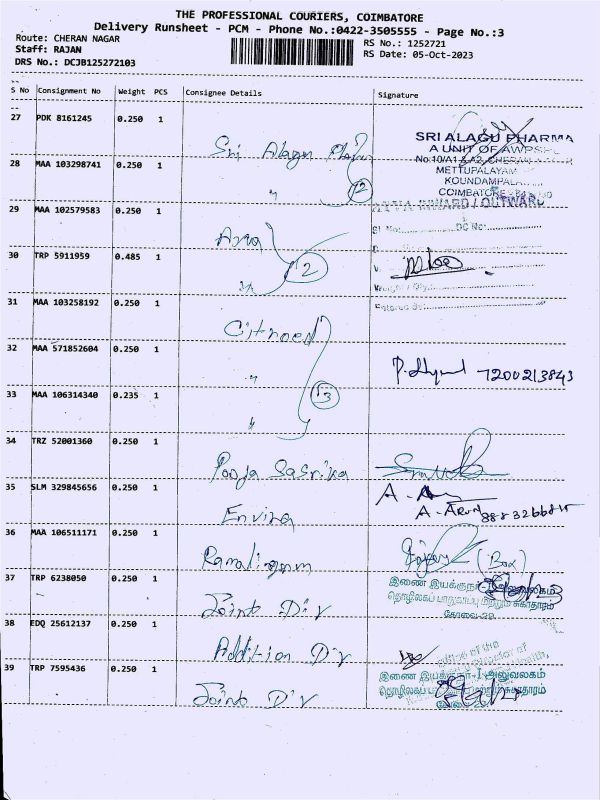 THE PROFESSIONAL COURIERS, COIMBATORE
Delivery Runsheet - PCM - Phone No.:0422-3505555 - Page No.:3
Route: CHERAN NAGAR
Staff: RAJAN
DRS No.: DCJB125272103
RS No.: 1252721
RS Date: 05-Oct-2023
S No Consignment No Weight PCS Consignee Details Signature
27 PDK 8161245 0.250 1
Sri Alagu
SRI ALAGU PHARMA
A UNIT OF
No:10/A1 & A2, CHERAN
METTUPALAYAM
KOUNDAMPAL
COIMBATORE
INWARD / OUTWARD
28 MAA 103298741 0.250 1
" 2
29 MAA 102579583 0.250 1
DC No:
30 TRP 5911959 0.485 1
2
31 MAA 103258192 0.250 1
Citroen
32 MAA 571852604 0.250 1
"
P. 7200213843
33 MAA 106314340 0.235 1
" 3
34 TRZ 52001360 0.250 1
Pooja Sasrika
35 SLM 329845656 0.250 1
Envira
A - ARUN
36 MAA 106511171 0.250 1
Ramalingam
(Box)
37 TRP 6238050 0.250 1
Joint Dir
இணை இயக்குநர் அலுவலகம்
தொழிலகப் பாதுகாப்பு மற்றும் சுகாதாரம்
கோவை-29.
38 EDQ 25612137 0.250 1
Addition Dir
office of the
39 TRP 7595436 0.250 1
Joint Dir
இணை இயக்குநர்-1 அலுவலகம்
தொழிலகப் பாதுகாப்பு மற்றும் சுகாதாரம்